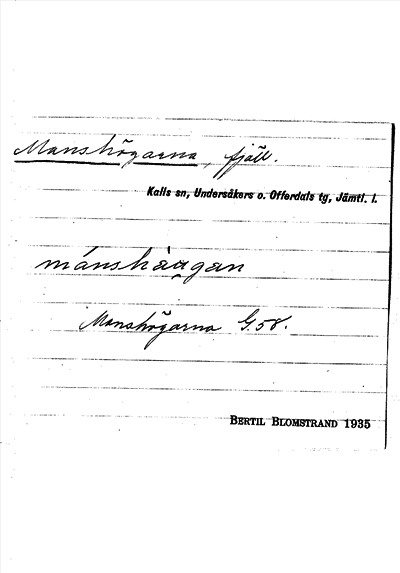 Manshögarna, fjäll.
Kalls sn, Undersåkers o. Offerdals tg, Jämtl. l.
mánshàu̯gan
Manshögarna G.58.
BERTIL BLOMSTRAND 1935